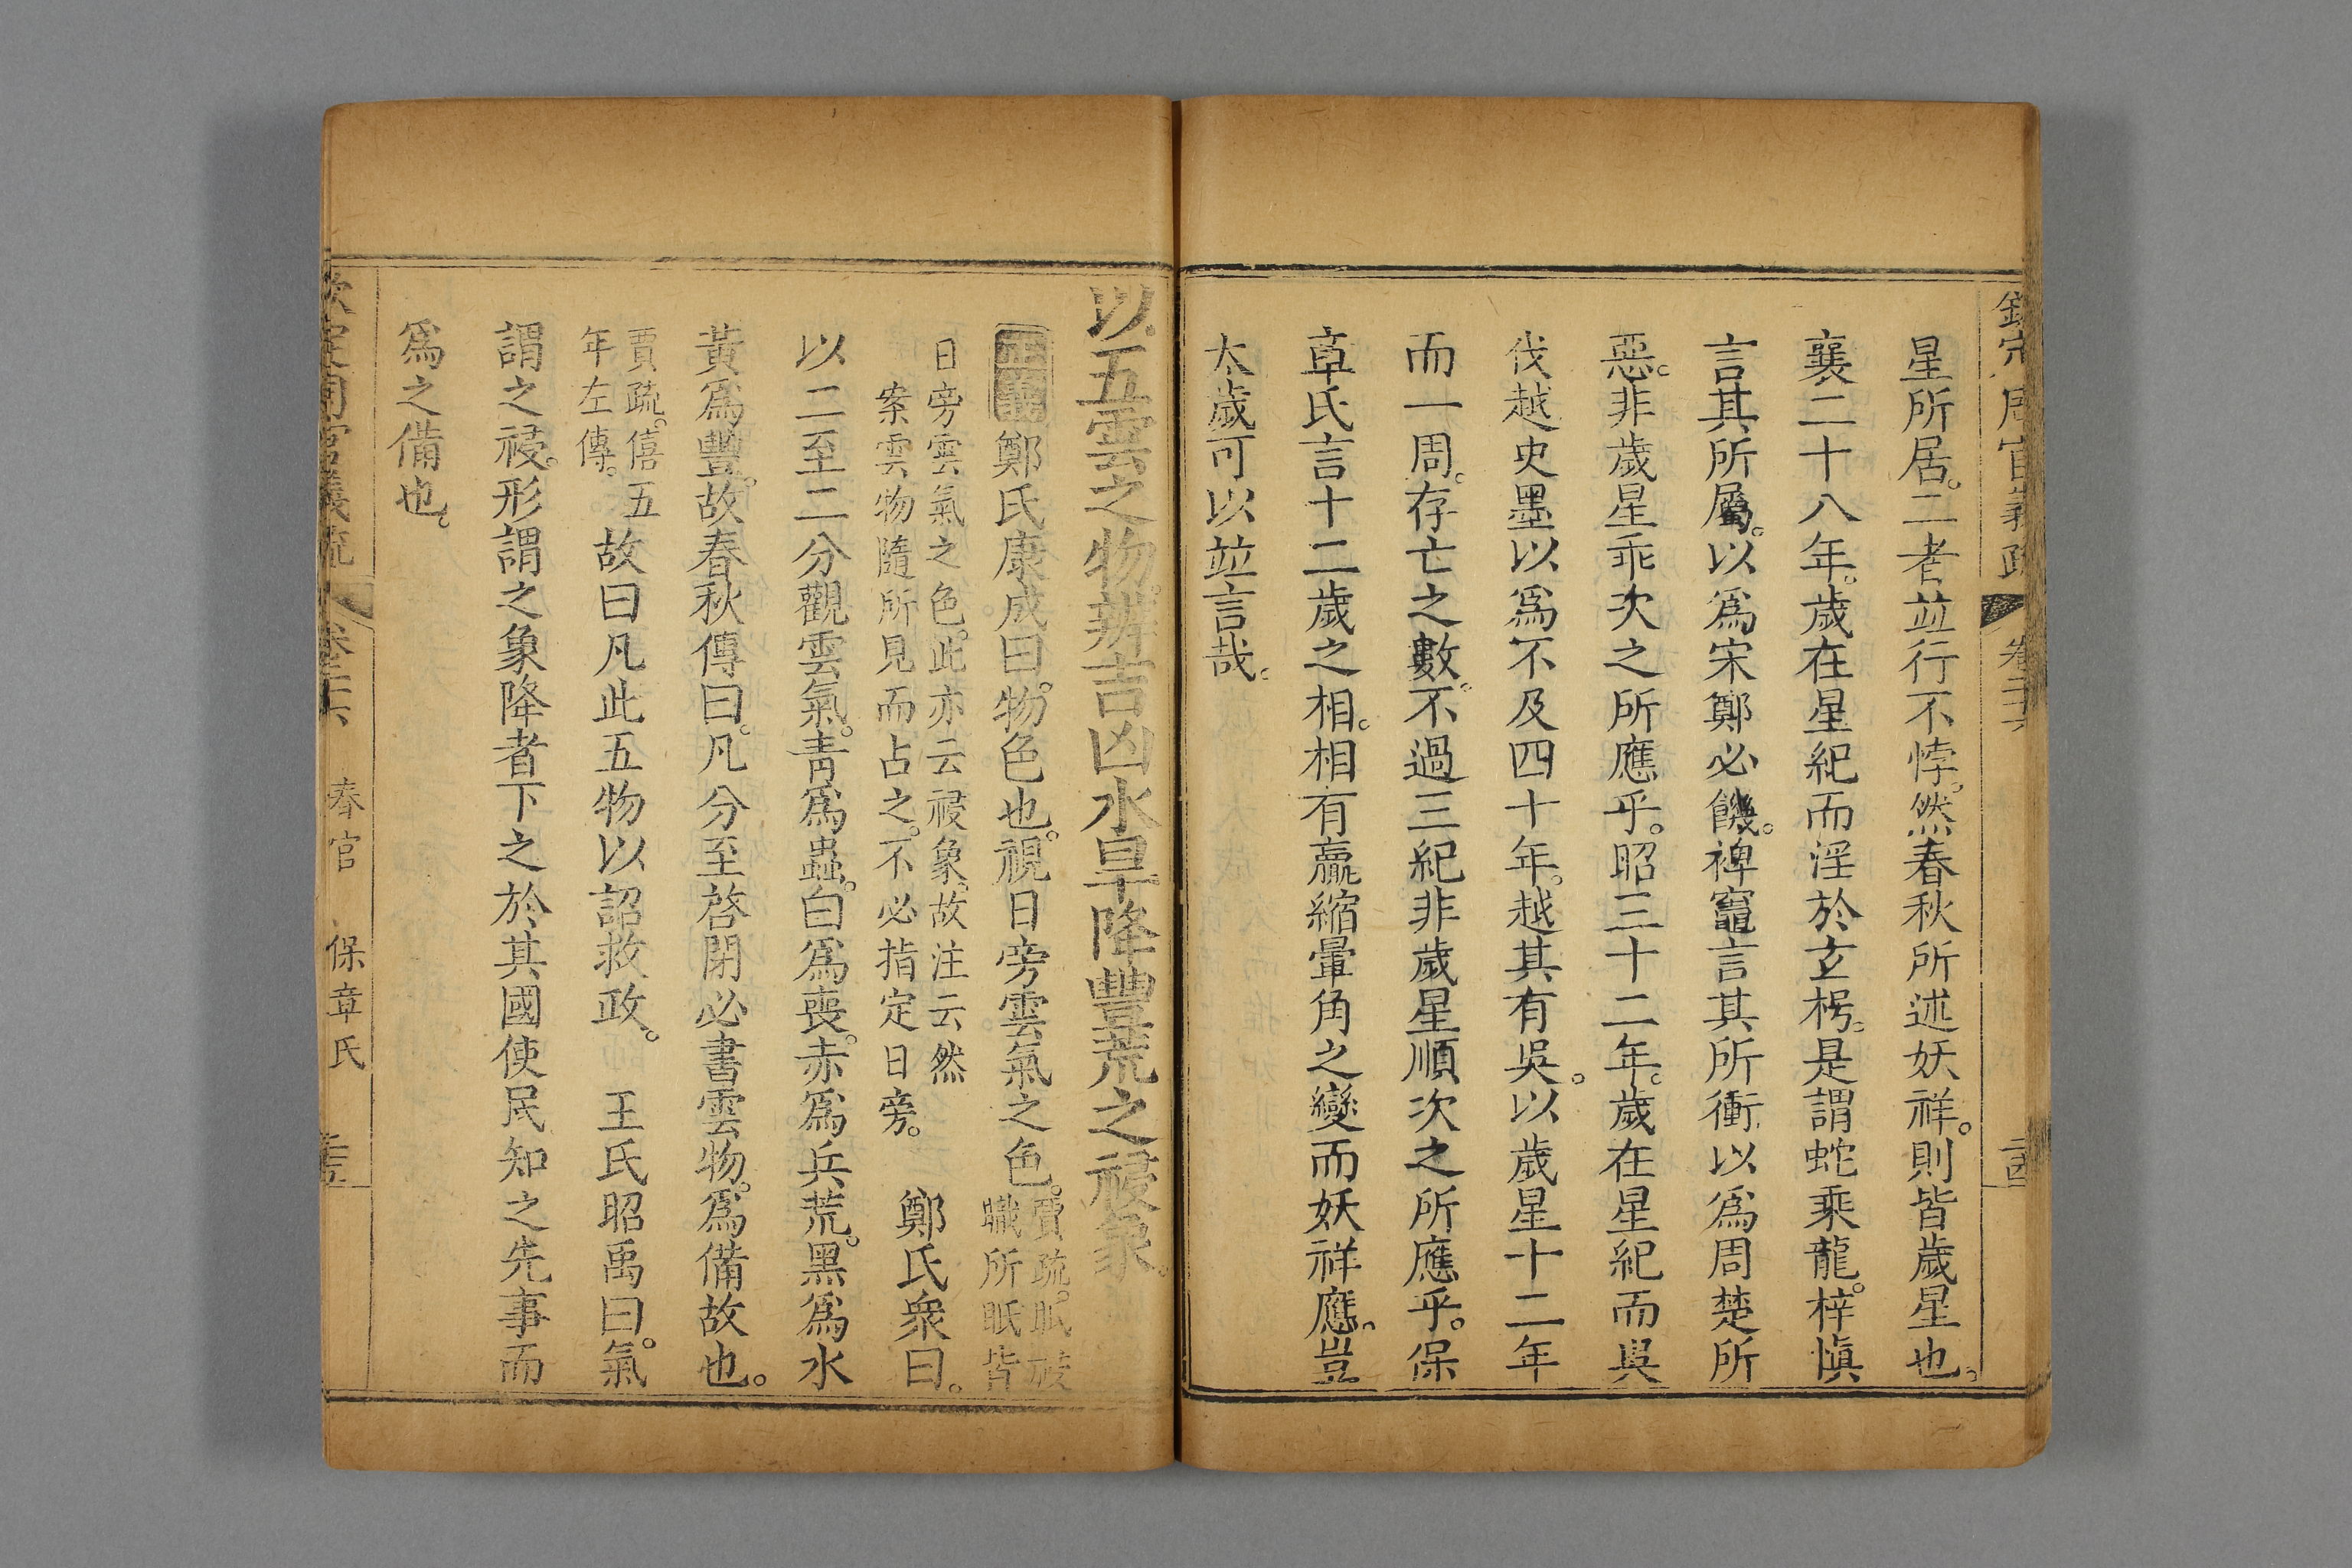 欽定周官義疏 卷二十六 二十四
星所居。二者並行不悖。然春秋所述妖祥。則皆歲星也。
襄二十八年。歲在星紀而淫於玄枵。是謂蛇乘龍。梓愼
言其所屬。以爲宋鄭必饑。裨竈言其所衝以爲周楚所
惡。非歲星乖次之所應乎。昭三十二年。歲在星紀而吳
伐越史墨以爲不及四十年。越其有吳。以歲星十二年
而一周。存亡之數。不過三紀非歲星順次之所應乎。保
章氏言十二歲之相。相有贏縮暈角之變而妖祥應。豈
太歲可以並言哉。
以五雲之物。辨吉凶水旱降豐荒之祲象。
正義鄭氏康成曰。物色也。視日旁雲氣之色。
賈疏。眡祲
職所眡皆
日旁雲氣之色。此亦云祲象。故注云然
案雲物隨所見而占之。不必指定日旁。
鄭氏衆曰。
以二至二分觀雲氣。靑爲蟲。白爲喪。赤爲兵荒。黑爲水
黃爲豐。故春秋傳曰。凡分至啓閉必書雲物。爲備故也。
賈疏。僖五
年左傳。
故曰凡此五物以詔救政。 王氏昭禹曰。氣
謂之祲。形謂之象降者下之於其國使民知之先事而
爲之備也。
欽定周官義疏 卷二十六 春官 保章氏 二十五